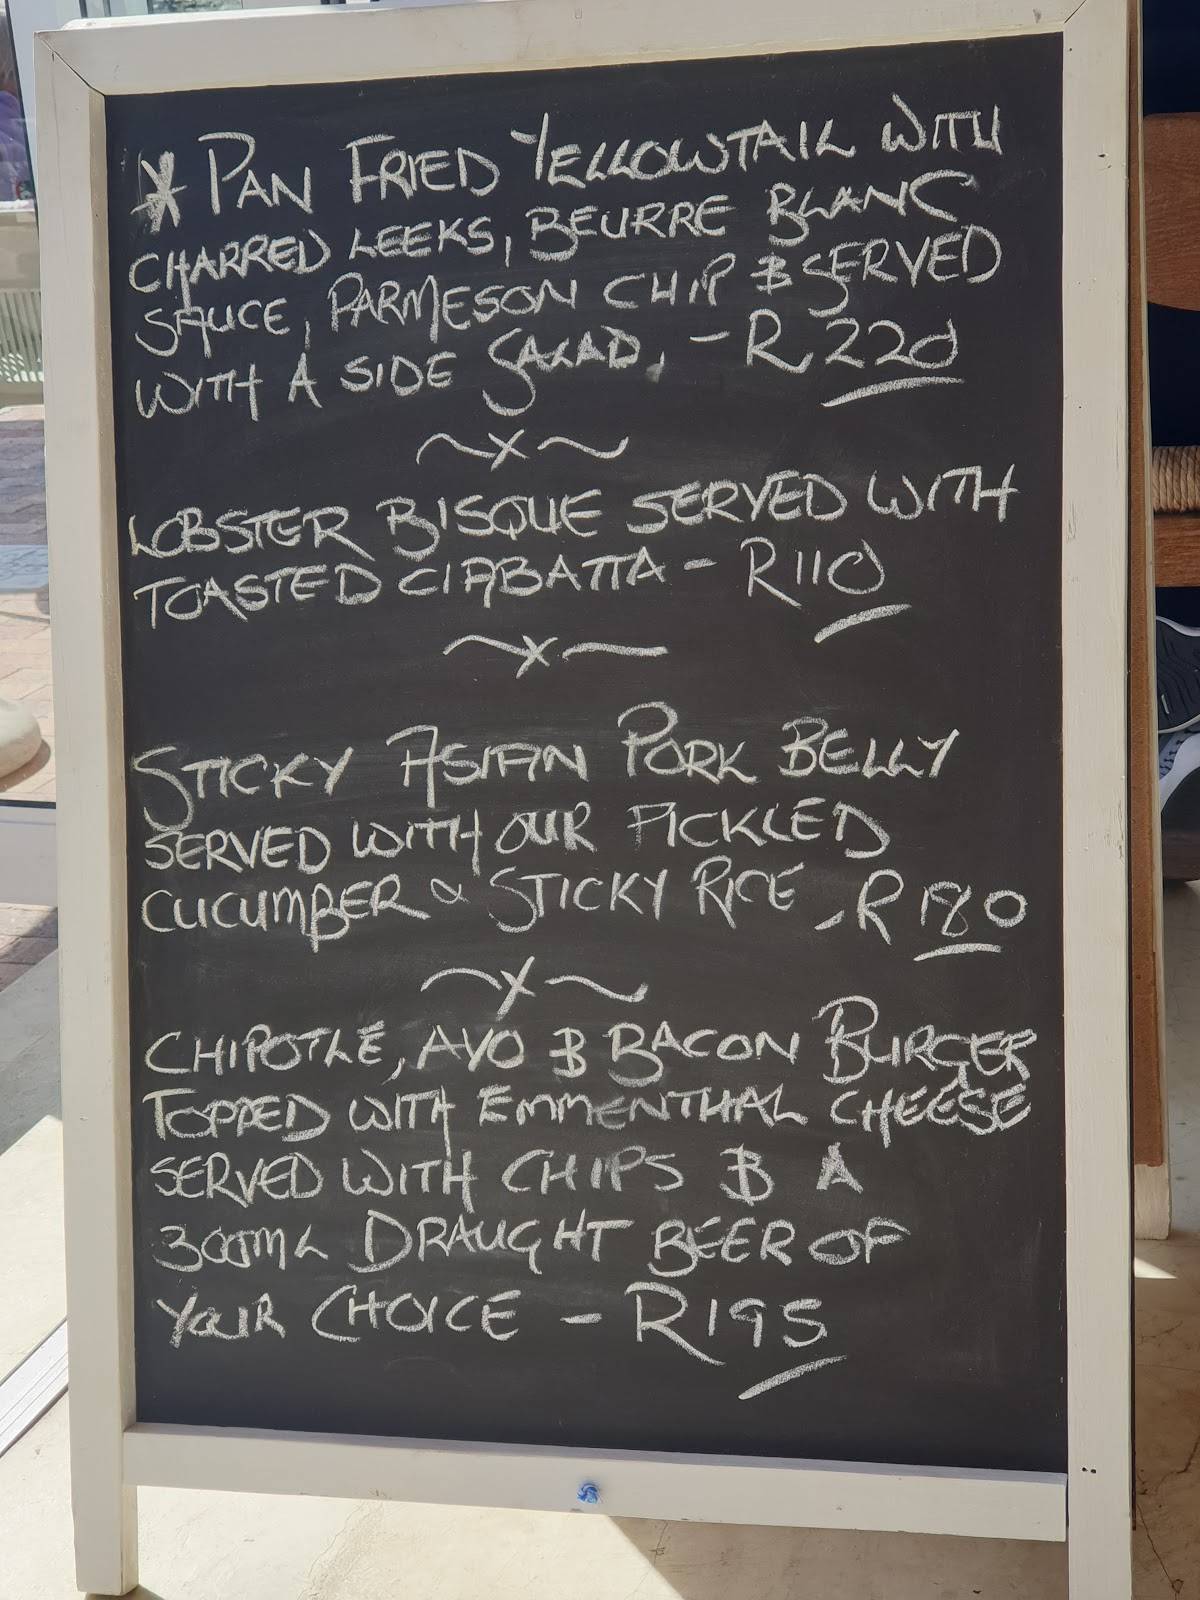 * PAN FRIED YELLOWTAIL WITH
CHARRED LEEKS, BEURRE BLANC
SAUCE, PARMESON CHIP & SERVED
WITH A SIDE SALAD, - R220
~x~
LOBSTER BISQUE SERVED WITH
TOASTED CIABATTA - R110
~x~
STICKY ASIAN PORK BELLY
SERVED WITH OUR PICKLED
CUCUMBER & STICKY RICE - R180
~x~
CHIPOTLE, AVO & BACON BURGER
TOPPED WITH EMMENTHAL CHEESE
SERVED WITH CHIPS & A
300ML DRAUGHT BEER OF
YOUR CHOICE - R195